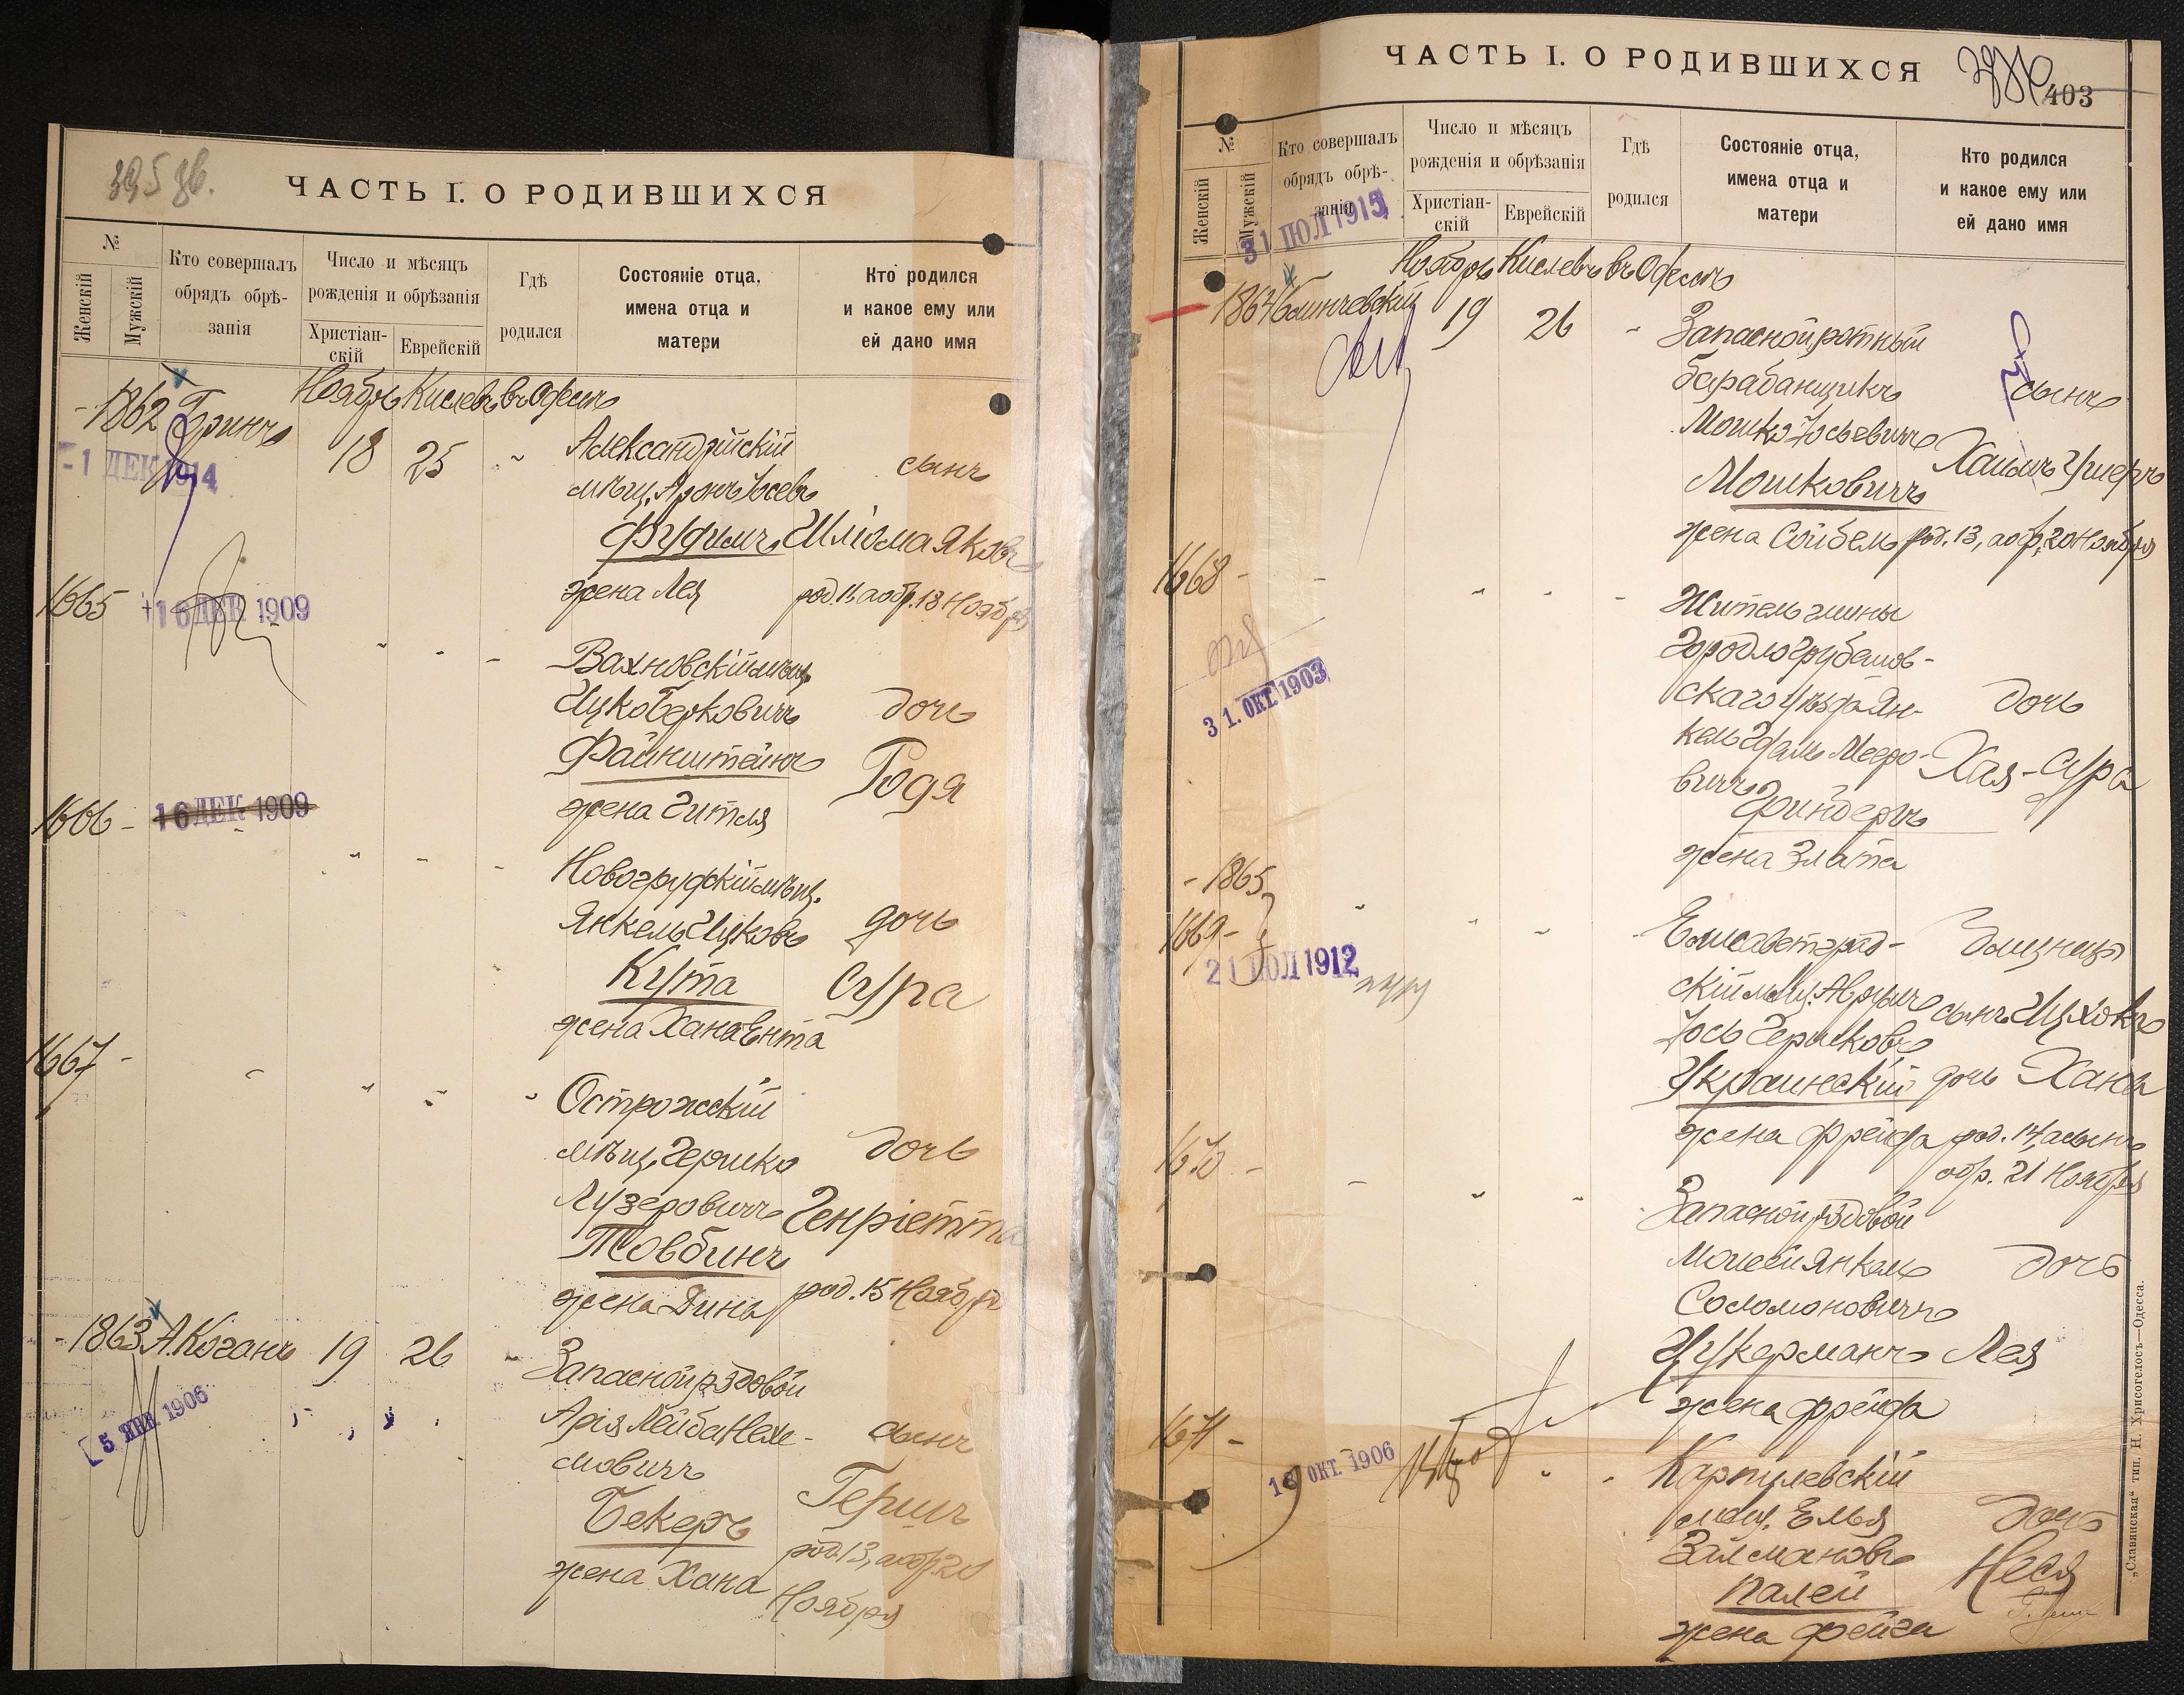 395 дв.
ЧАСТЬ I. О РОДИВШИХСЯ
№
Женскій
Мужскій
Кто совершалъ
обрядъ обрѣ-
занія
Число и мѣсяцъ
рожденія и обрѣзанія
Христіан-
скій
Еврейскій
Гдѣ
родился
Состояніе отца,
имена отца и
матери
Кто родился
и какое ему или
ей дано имя
Ноябрь Кислевъ въ Одессѣ
- 1862 Гринъ 18 25 Александрійскій
-1 ДЕК 1914
мѣщ. Аронъ Іосевъ сынъ
Фудимъ Шліома Яковъ
жена Лея род. 11, а обр. 18 Ноября
1665
16 ДЕК 1909
Вахновскій мѣщ.
Ицко Берковичъ дочь
Файнштейнъ Годя
жена Гитля
1666 -
16 ДЕК 1909
Новогрудскій мѣщ.
Янкель Ицковъ дочь
Кута Сура
жена Хана Ента
1667 -
Острожскій
мѣщ. Гершко дочь
Лузеровичъ Генріетта
Товбинъ
жена Дина род. 15 Ноября
- 1863 А. Коганъ 19 26 Запасной рядовой
5 ЯНВ 1906
Арія Лейба Нехе- сынъ
мовичъ
Бекеръ Гершъ
жена Хана род. 13, а обр. 20
Ноября
ЧАСТЬ I. О РОДИВШИХСЯ
403
№
Женскій
Мужскій
Кто совершалъ
обрядъ обрѣ-
занія
Число и мѣсяцъ
рожденія и обрѣзанія
Христіан-
скій
Еврейскій
Гдѣ
родился
Состояніе отца,
имена отца и
матери
Кто родился
и какое ему или
ей дано имя
31 ІЮЛ 1915
Ноябрь Кислевъ въ Одессѣ
- 1864 19 26 Запасной ротный
барабанщикъ сынъ
Мошко Іосьевичъ
Мошковичъ Хаимъ Ушеръ
жена Сойбель род. 13, а обр. 20 Ноября
1668 -
Житель гмины
Городло Грубешов-
скаго уѣзда Ян- дочь
31. ОКТ 1903
кель Гдаль Мееро- Хая-Сура
вичъ
жена Злата
- 1865
1669 -
21 ІЮЛ 1912
Елисаветград- Близнецы
скій мѣщ. Аврумъ сынъ Ицхокъ
Іось Гершковъ
Украинскій дочь Хана
жена Фрейда род. 14, а сынъ
обр. 21 Ноября
1670 -
Запасной рядовой
Мошъ Янкель дочь
Соломоновичъ
Цукерманъ Лея
жена Фрейда
1671 -
18 ОКТ. 1906
мѣщ. Елья дочь
Залмановъ
Палей Неся
жена Фейга
„Славянская“ тип. Н. Хрисогелосъ—Одесса.